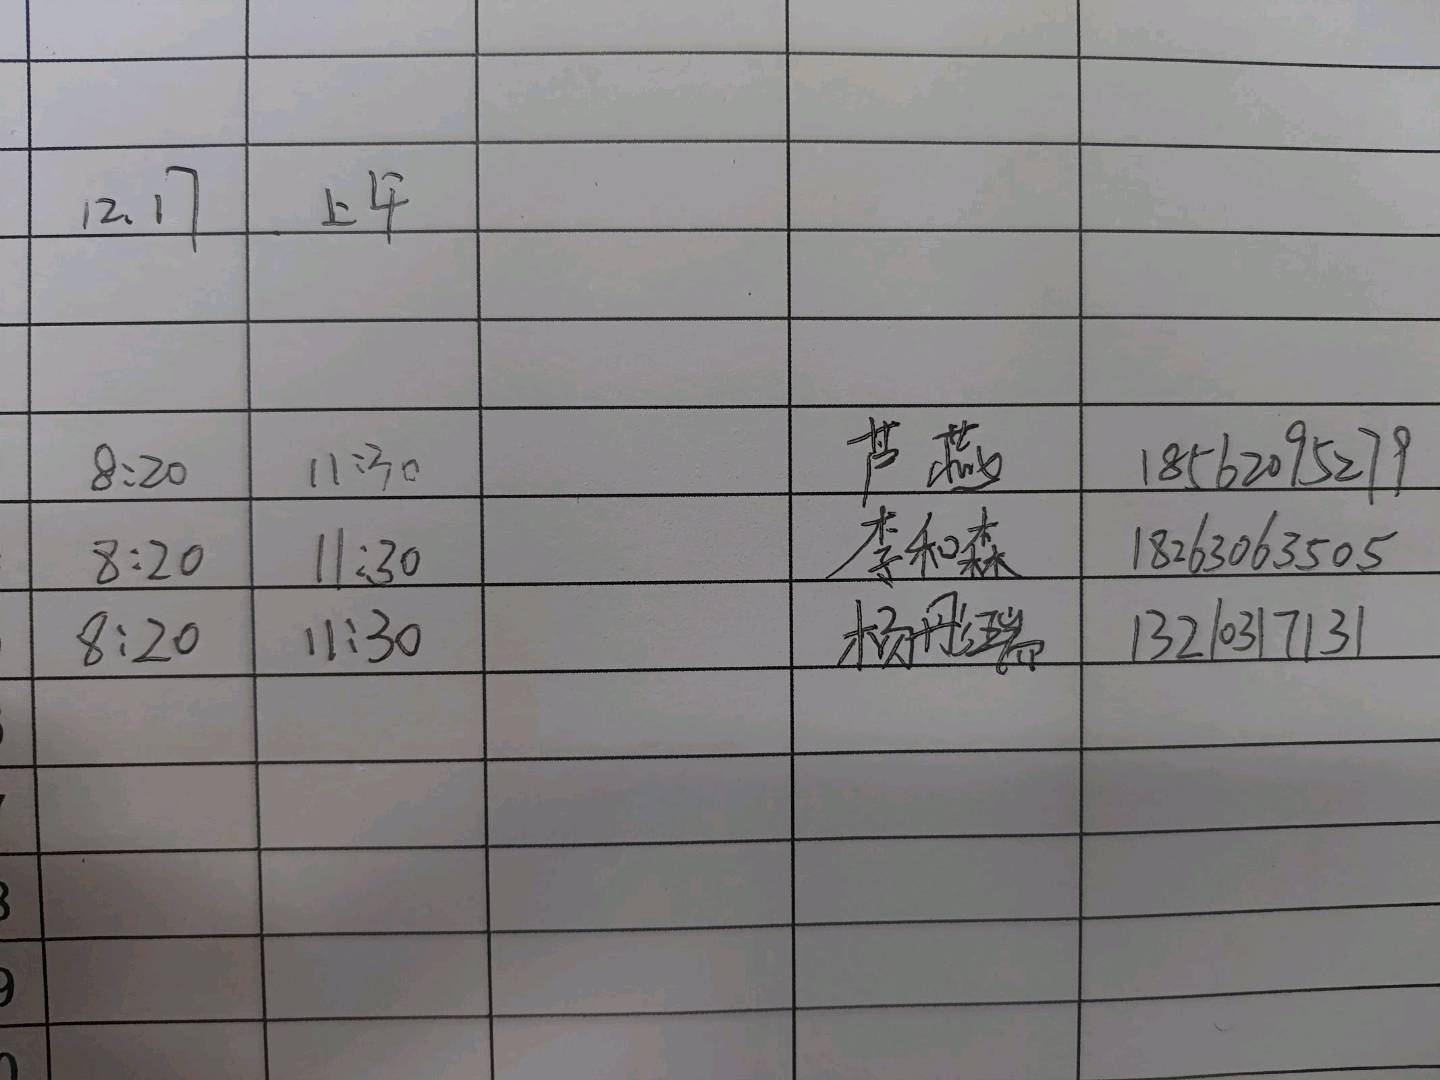 12.17 上午
8:20 11:30 芦燕 18562095279
8:20 11:30 李和森 18263063505
8:20 11:30 13210317131
8
9